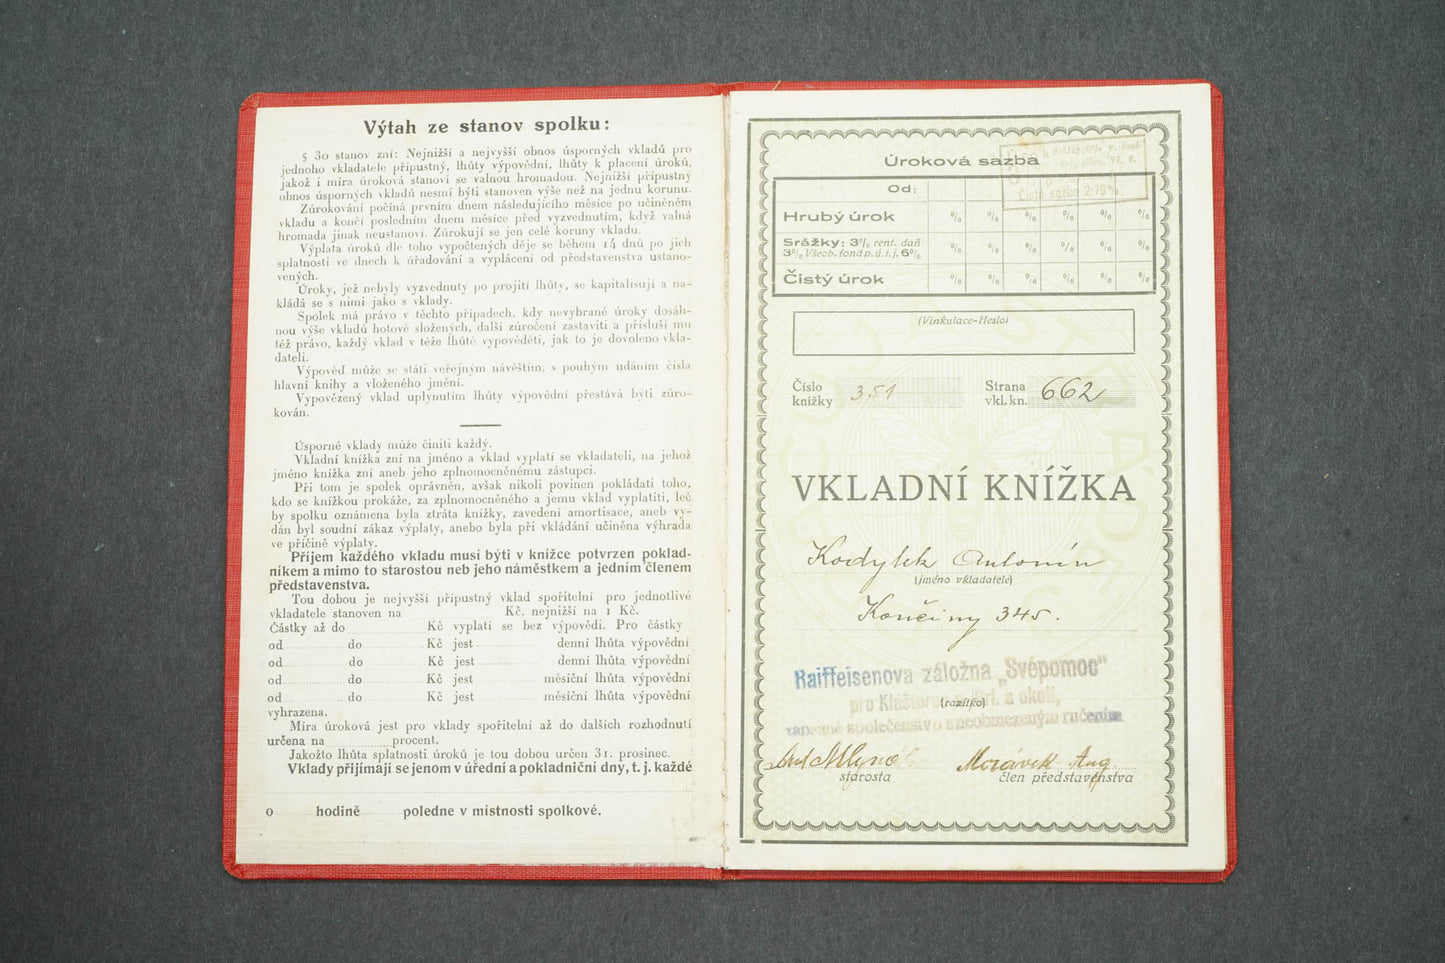 Výtah ze stanov spolku:
§ 30 stanov zní: Nejnižší a nejvyšší obnos úsporných vkladů pro
jednoho vkladatele přípustný, lhůty výpovědní, lhůty k placení úroků,
jakož i míra úroková stanoví se valnou hromadou. Nejnižší přípustný
obnos úsporných vkladů nesmí býti stanoven výše než na jednu korunu.
Zúrokování počíná prvním dnem následujícího měsíce po učiněném
vkladu a končí posledním dnem měsíce před vyzvednutím, když valná
hromada jinak neustanoví. Zúrokují se jen celé koruny vkladu.
Výplata úroků dle toho vypočtených děje se během 14 dnů po jich
splatnosti ve dnech k úřadování a vyplácení od představenstva ustano-
vených.
Úroky, jež nebyly vyzvednuty po projití lhůty, se kapitalisují a na-
kládá se s nimi jako s vklady.
Spolek má právo v těchto případech, kdy nevybrané úroky dosáh-
nou výše vkladů hotově složených, další zúročení zastaviti a přísluší mu
též právo, každý vklad v téže lhůtě vypověděti, jak to je dovoleno vkla-
dateli.
Výpověď může se státi veřejným návěštím, s pouhým udáním čísla
hlavní knihy a vloženého jmění.
Vypovězený vklad uplynutím lhůty výpovědní přestává býti zúro-
kován.
Úsporné vklady může činiti každý.
Vkladní knížka zní na jméno a vklad vyplatí se vkladateli, na jehož
jméno knížka zní aneb jeho zplnomocněnému zástupci.
Při tom je spolek oprávněn, avšak nikoli povinen pokládati toho,
kdo se knížkou prokáže, za zplnomocněného a jemu vklad vyplatiti, leč
by spolku oznámena byla ztráta knížky, zavedení amortisace, aneb vy-
dán byl soudní zákaz výplaty, anebo byla při vkládání učiněna výhrada
ve příčině výplaty.
Příjem každého vkladu musí býti v knížce potvrzen poklad-
níkem a mimo to starostou neb jeho náměstkem a jedním členem
představenstva.
Tou dobou je nejvyšší přípustný vklad spořitelní pro jednotlivé
vkladatele stanoven na Kč, nejnižší na 1 Kč.
Částky až do Kč vyplatí se bez výpovědi. Pro částky
od do Kč jest denní lhůta výpovědní
od do Kč jest denní lhůta výpovědní
od do Kč jest měsíční lhůta výpovědní
od do Kč jest měsíční lhůta výpovědní
vyhrazena.
Míra úroková jest pro vklady spořitelní až do dalších rozhodnutí
určena na procent.
Jakožto lhůta splatnosti úroků je tou dobou určen 31. prosinec.
Vklady přijímají se jenom v úřední a pokladniční dny, t. j. každé
o hodině poledne v místnosti spolkové.
Úroková sazba
Čistá sazba 2·79%
Od:
Hrubý úrok % % % % % %
Srážky: 3% rent. daň
3% Všeob. fond p. ú. t. j. 6% % % % % % %
Čistý úrok % % % % % %
(Vinkulace-Heslo)
Číslo knížky 351
Strana vkl. kn. 662
VKLADNÍ KNÍŽKA
Kodytek Antonín
(jméno vkladatele)
Končiny 345.
Raiffeisenova záložna „Svépomoc"
pro a okolí,
(razítko)
zapsané společenstvo s neobmezeným ručením
Morávek Aug.
starosta člen představenstva